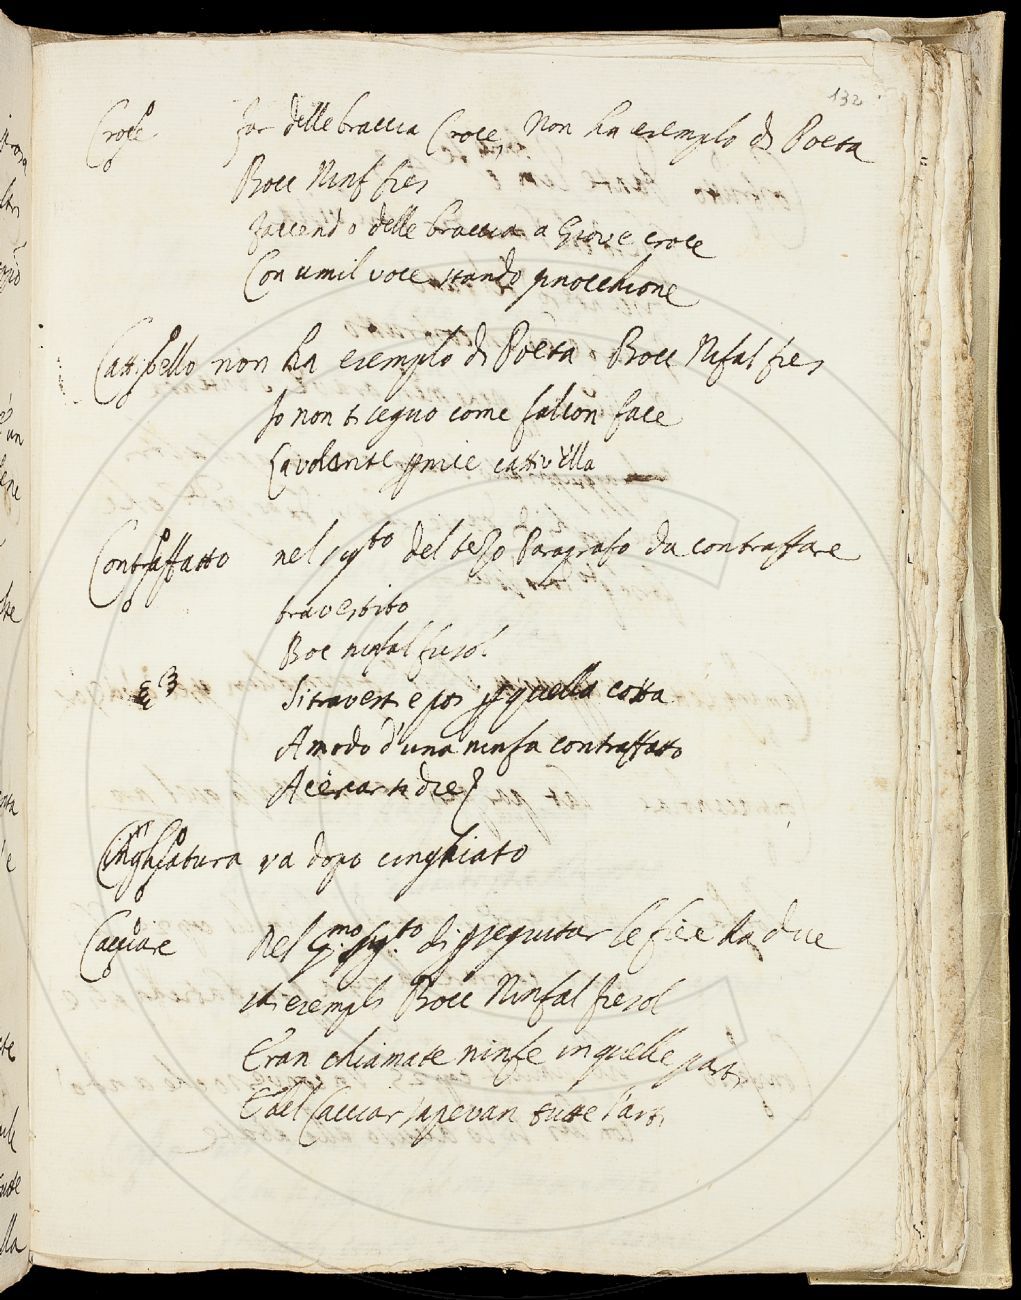 132
Croce. far delle braccia Croce, Non ha esemplo di Poeta
Bocc Ninf fies
faccendo delle braccia a Giove croce
Con umil voce stando ginocchione
Cattivello non ha esemplo di Poeta. Bocc Nifal fies
Io non ti seguo come falcon face
La volante pernice cattivella
Contraffatto nel sig.to del terzo Paragrafo da contraffare
travestito
Boc ninfal fiesol.
Si travestì e poi per quella cotta
A modo d'una ninfa contraffatto
A cercar
Cinghiatura va dopo cinghiato
Cacciare Nel p.mo sig.to di perseguitar le fiere ha due
esempli Bocc Ninfal fiesol
Eran chiamate ninfe in quelle parti
E del Cacciar sapevan tutte l'arti